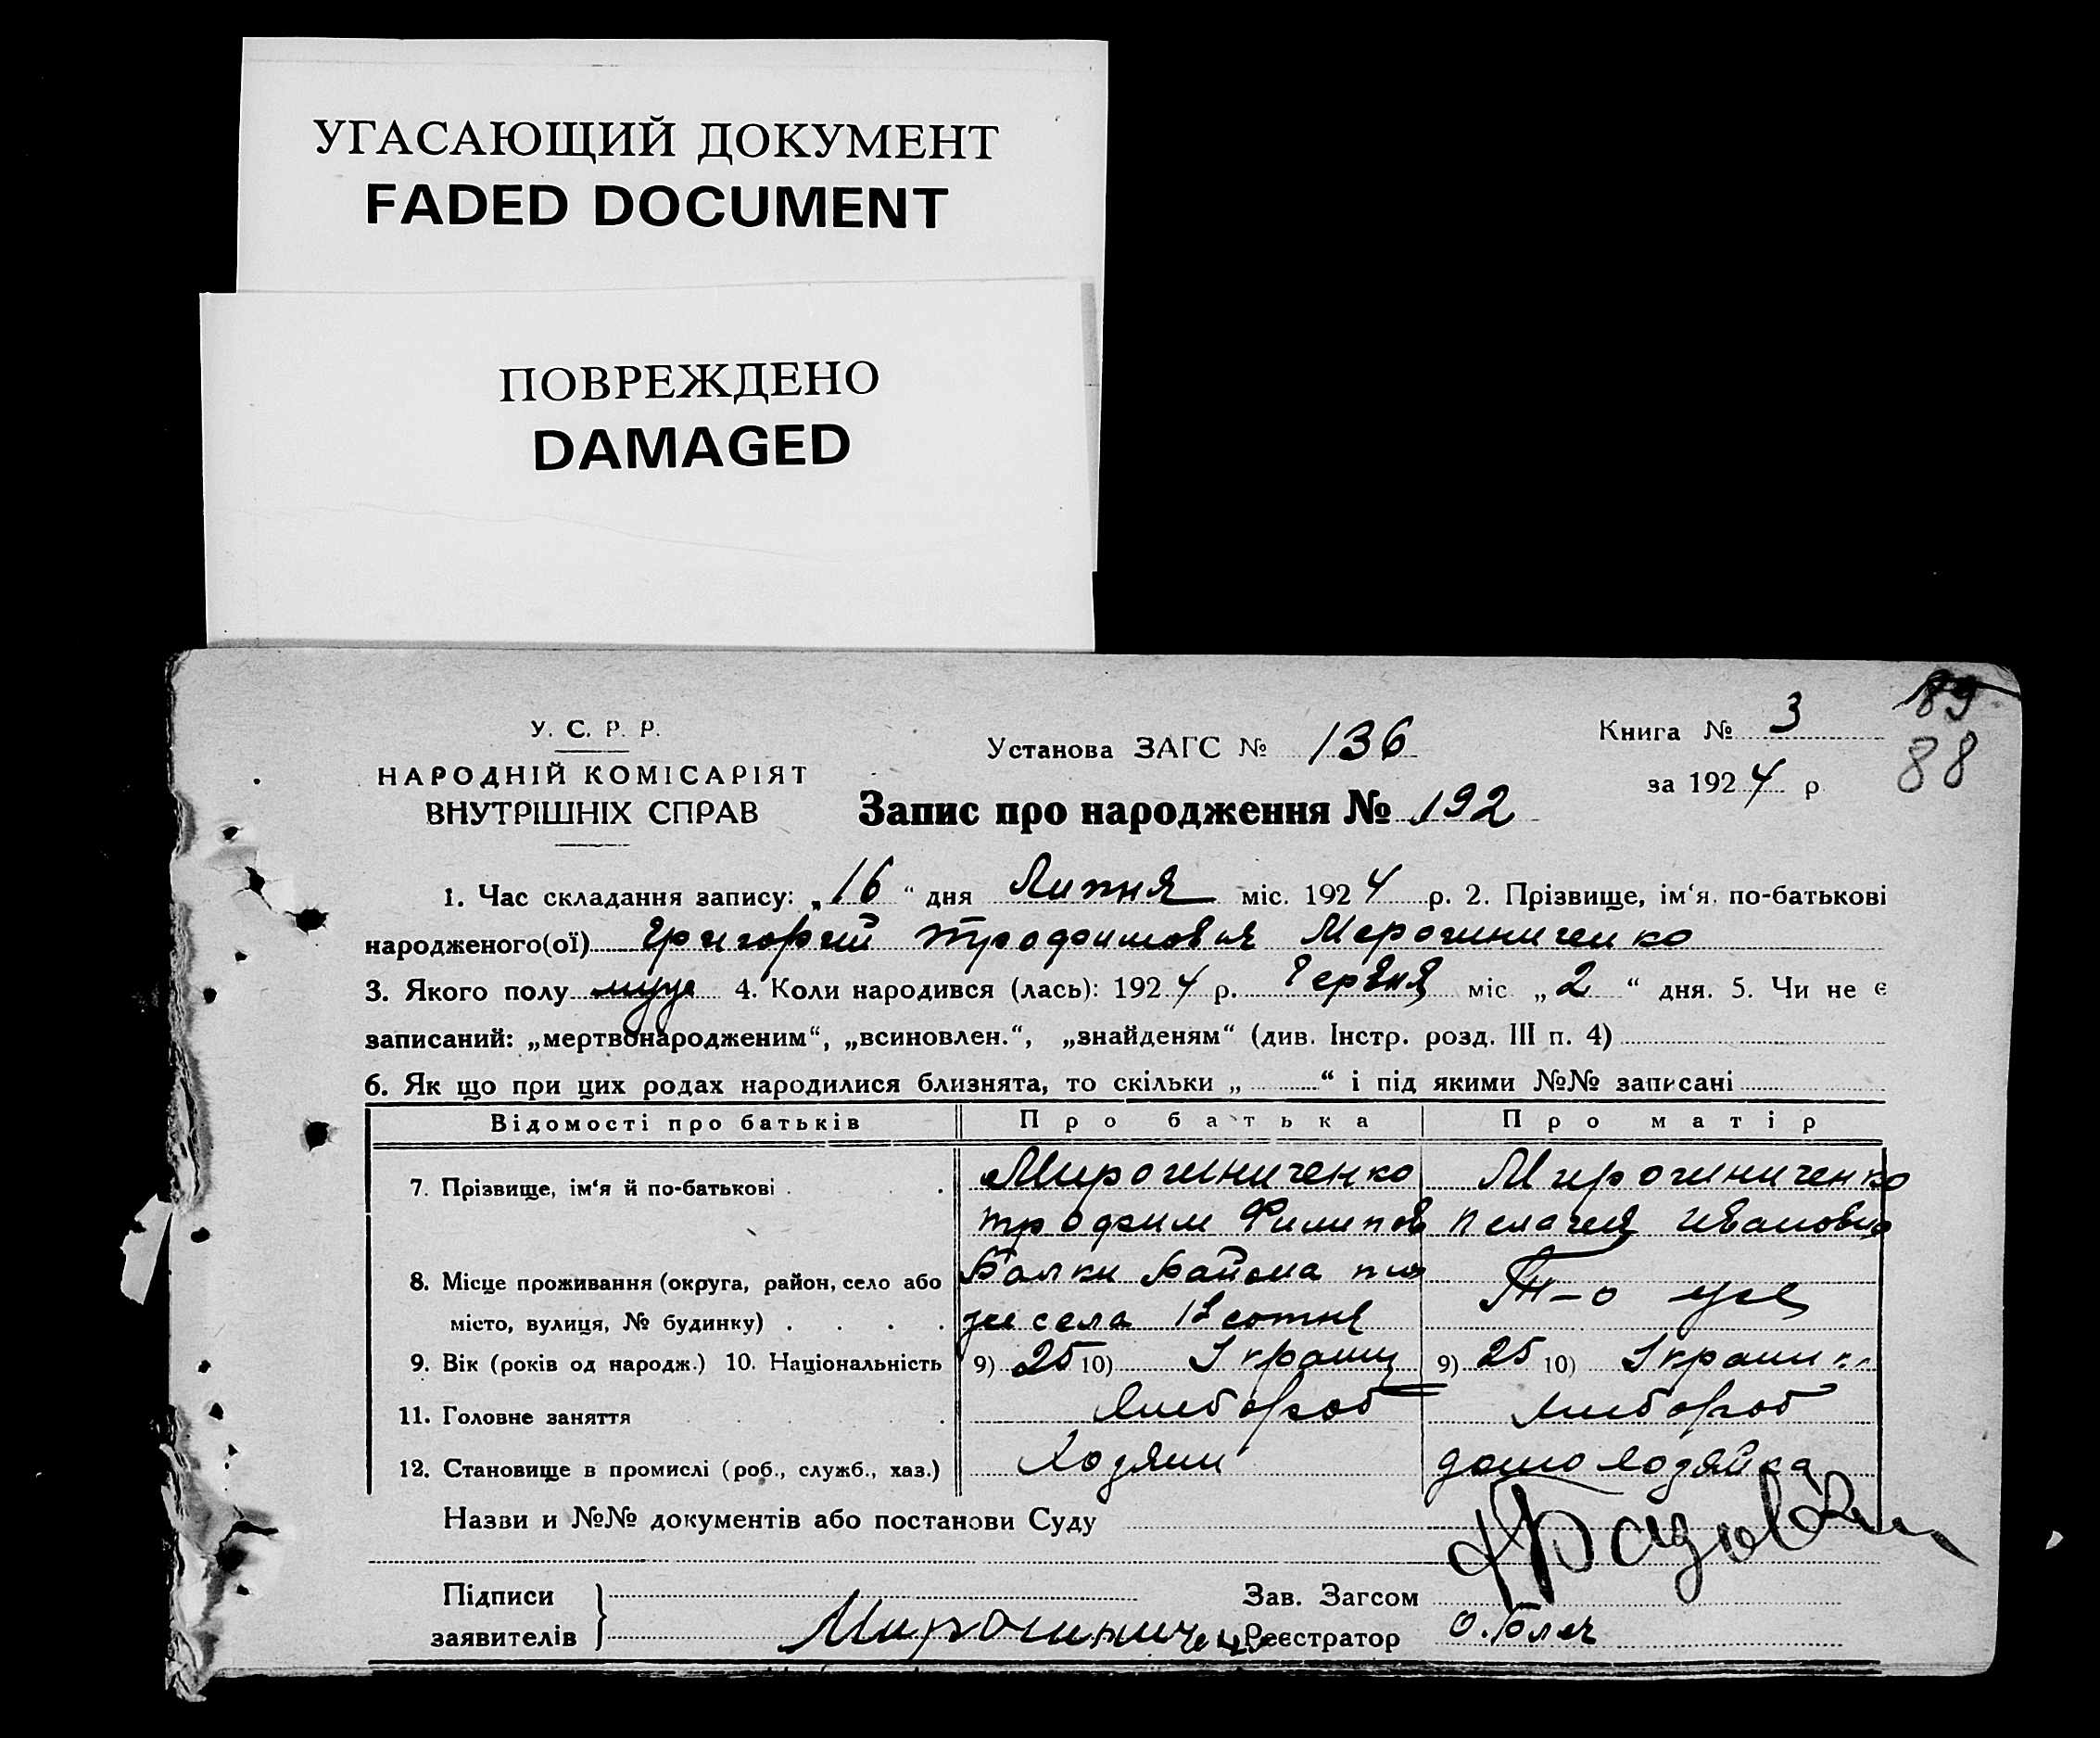 УГАСАЮЩИЙ ДОКУМЕНТ
FADED DOCUMENT
ПОВРЕЖДЕНО
DAMAGED
89
88
У. С. Р. Р.
НАРОДНІЙ КОМІСАРІЯТ
ВНУТРІШНІХ СПРАВ
Установа ЗАГС № 136
Книга № 3
за 1924 р
Запис про народження № 192
1. Час складання запису: „16“ дня Липня міс. 1924 р. 2. Прізвище, ім‘я. по-батькові
народженого(ої) Григорій Трофимович Мерошниченко
3. Якого полу муж 4. Коли народився (лась): 1924 р. Червня міс. „2“ дня. 5. Чи не є
записаний: „мертвонародженим“, „всиновлен.“, „знайденям“ (див. Інстр. розд. III п. 4)
6. Як що при цих родах народилися близнята, то скільки „ “ і під якими №№ записані
Відомості про батьків Про батька Про матір
7. Прізвище, ім‘я й по-батькові Мирошниченко Мирошниченко
Трофим Филипов Пелагея Ивановна
8. Місце проживання (округа, район, село або Балки Района
місто, вулиця, № будинку) села 12 сотня Т-о же
9. Вік (років од народж.) 10. Національність 9) 25 10) Украинц 9) 25 10) Украинк
11. Головне заняття Хлебороб Хлебороб
12. Становище в промислі (роб., служб., хаз.) Хозяин домохозяйка
Назви и №№ документів або постанови Суду
Підписи
заявителів Мирошниченко
Зав. Загсом
Реєстратор